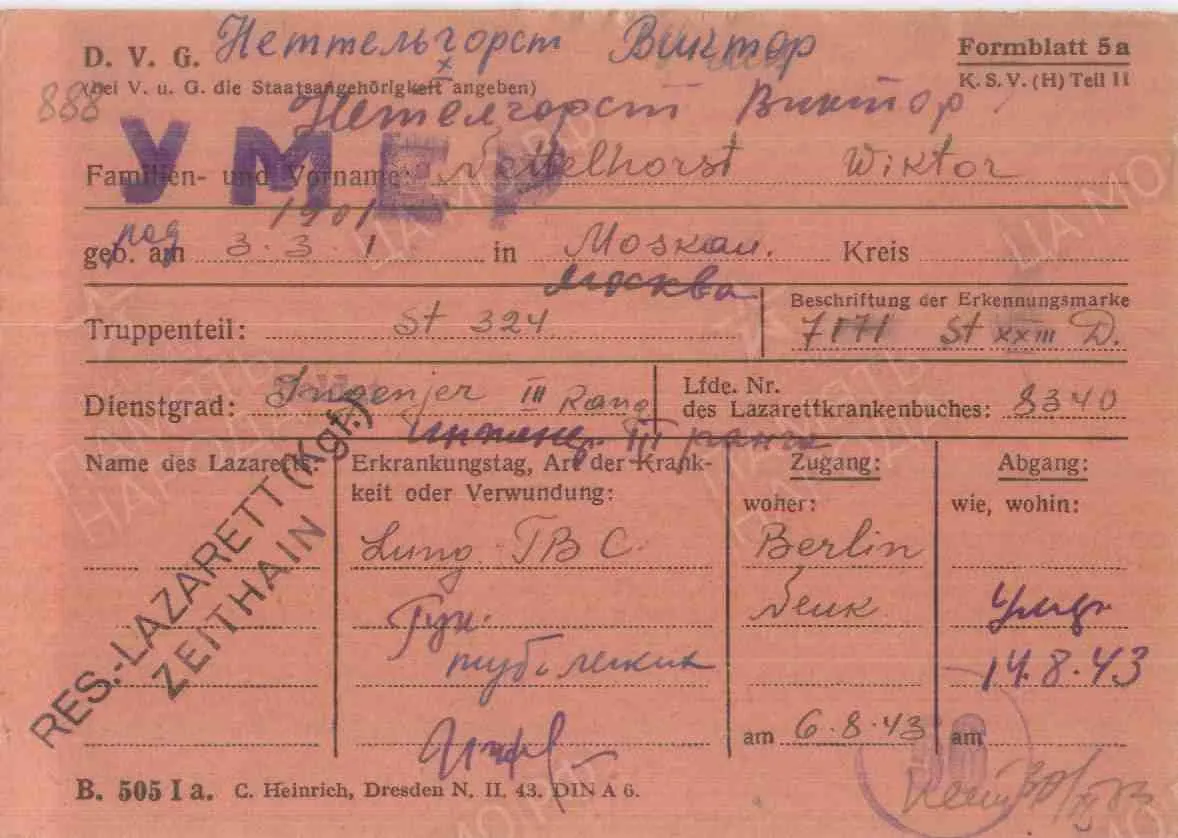 D. V. G. Неттельгорст Виктор
Formblatt 5a
(bei V. u. G. die Staatsangehörigkeit angeben)
K. S. V. (H) Teil II
888
Нетелгорст Виктор
УМЕР
Familien- und Vorname: Nettelhorst Wiktor
1901
род
geb. am 3.3.1 in Moskau. Kreis
Москва
Truppenteil: St 324
Beschriftung der Erkennungsmarke
7171 St XXIII D.
Dienstgrad: Ingenjer III Rang
Lfde. Nr.
des Lazarettkrankenbuches: 8340
инженер. III ранга
Name des Lazaretts:
RES.-LAZARETT (Kgf.)
ZEITHAIN
Erkrankungstag, Art der Krank-
keit oder Verwundung:
Lung. TBC.
туб. легких
Zugang:
woher:
Berlin
am 6.8.43
Abgang:
wie, wohin:
Умер
14.8.43
am
B. 505 I a. C. Heinrich, Dresden N. II. 43. DIN A 6.
ЦА МО РФ
ПАМЯТЬ
НАРОДА